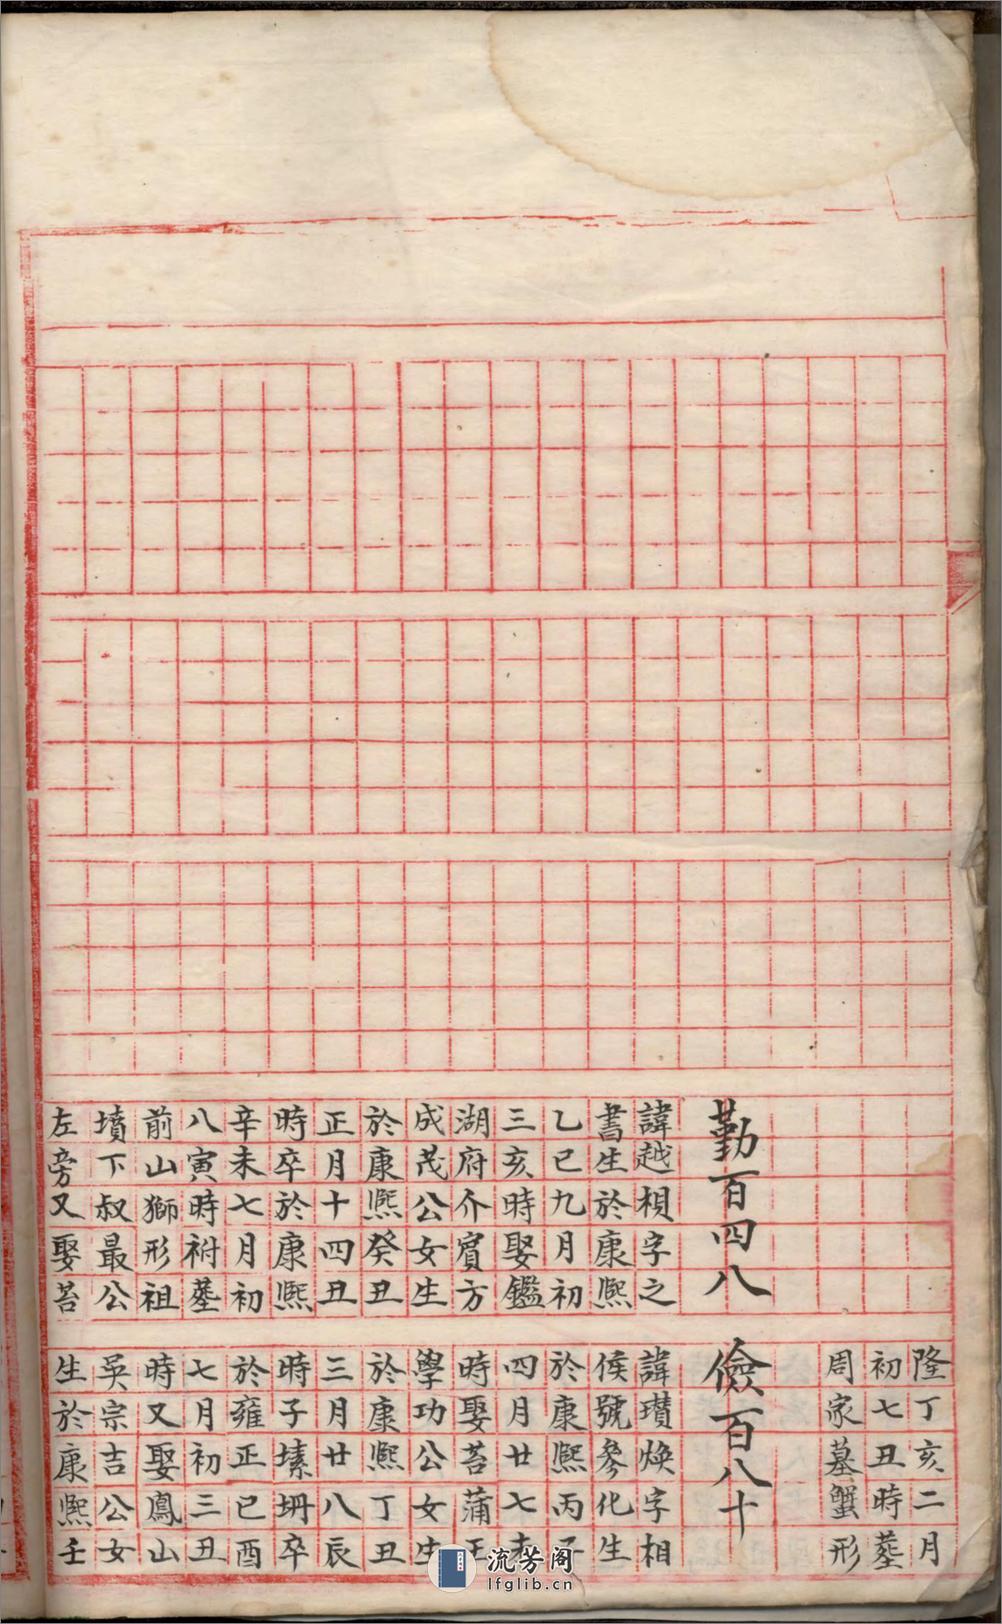 勤百四八
諱越楨字之
書生於康熙
乙巳九月初
三亥時娶鑑
湖府介賓方
成茂公女生
於康熙癸丑
正月十四丑
時卒於康熙
辛未七月初
八寅時祔塟
前山獅形祖
墳下叔最公
左旁又娶苔
隆丁亥二月
初七丑時塟
周家墓蟹形
儉百八十
諱瓚煥字相
侯號參化生
於康熙丙子
四月廿七未
時娶苔蒲王
學功公女生
於康熙丁丑
三月廿八辰
時子塐坍卒
於雍正己酉
七月初三丑
時又娶鳳山
吳宗吉公女
生於康熙壬
流芳阁
lfglib.cn